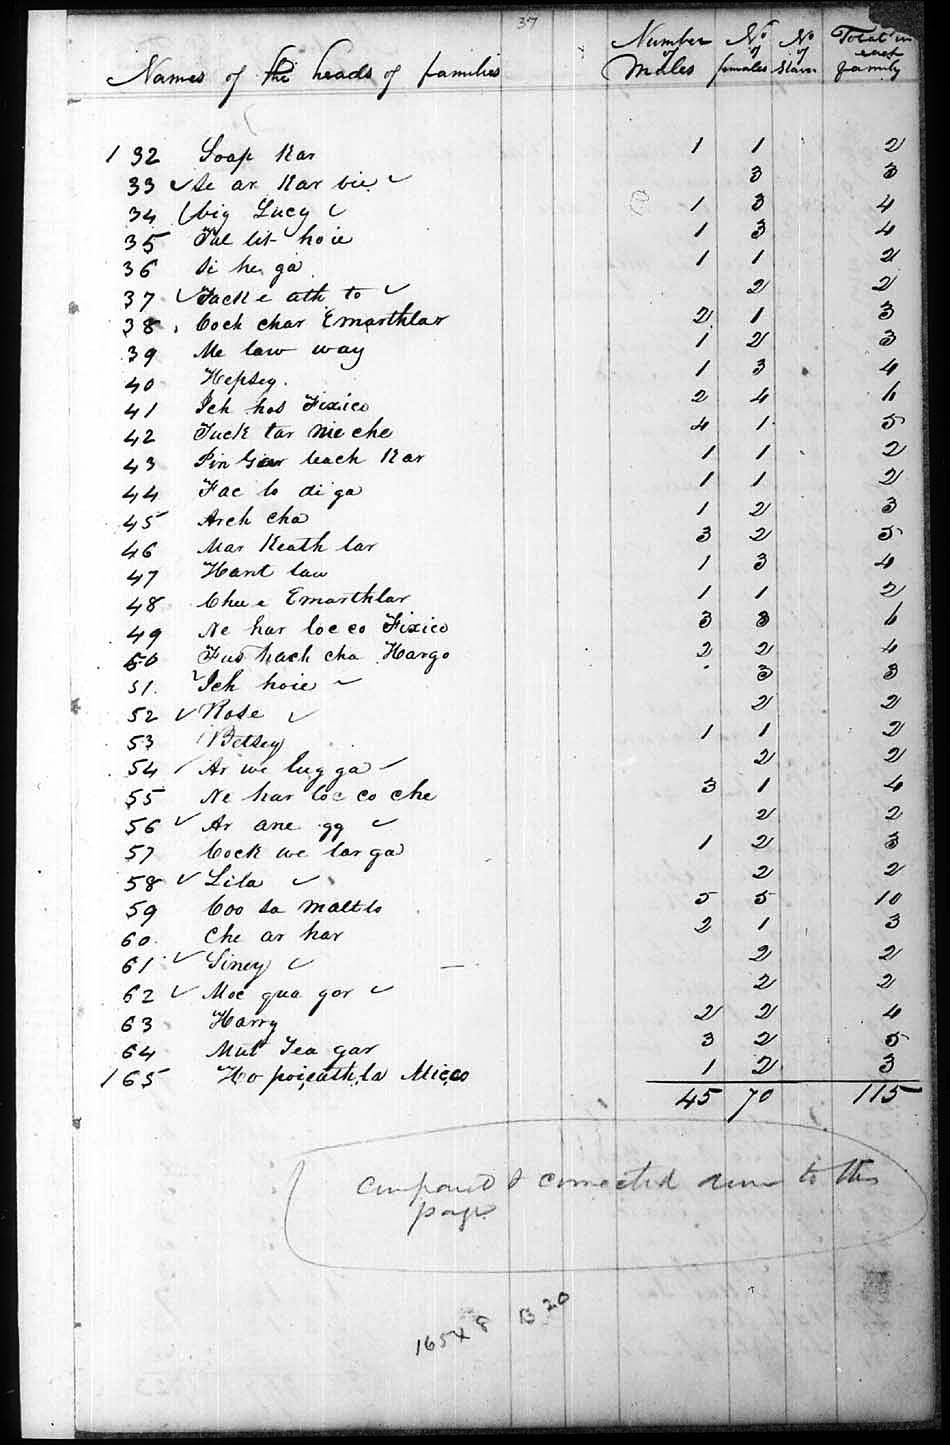 37
Names of the heads of families Number of Males No of females No of Slaves Total in each family
1 32 Soap Kar 1 1 2
33 Se ar Kar bie 3 3
34 big Lucy 1 3 4
35 Tal lit hoie 1 3 4
36 Si he ga 1 1 2
37 Jack e ath to 2 2
38 Coch char Emarthlar 2 1 3
39 Me law way 1 2 3
40 Hepsey 1 3 4
41 Ich hos Fixico 2 4 6
42 Tuck tar me che 4 1 5
43 Pin leach Kar 1 1 2
44 Fac lo di ga 1 1 2
45 Arch cha 1 2 3
46 Mar Keath lar 3 2 5
47 Hant law 1 3 4
48 Chu e Emarthlar 1 1 2
49 Ne har loc co Fixico 3 3 6
50 Fus hach cha Hargo 2 2 4
51 Ich hoie 3 3
52 Rose 2 2
53 Betsey 1 1 2
54 Ar we lug ga 2 2
55 Ne har loc co che 3 1 4
56 Ar ane gg 2 2
57 Cock we lar ga 1 2 3
58 Lila 2 2
59 Coo sa malt lo 5 5 10
60 Che ar har 2 1 3
61 Siney 2 2
62 Moc qua gor 2 2
63 Harry 2 2 4
64 Mut Tea gar 3 2 5
165 Ho poieath la Micco 1 2 3
45 70 115
compared & corrected down to this
page
1654 8 B 20